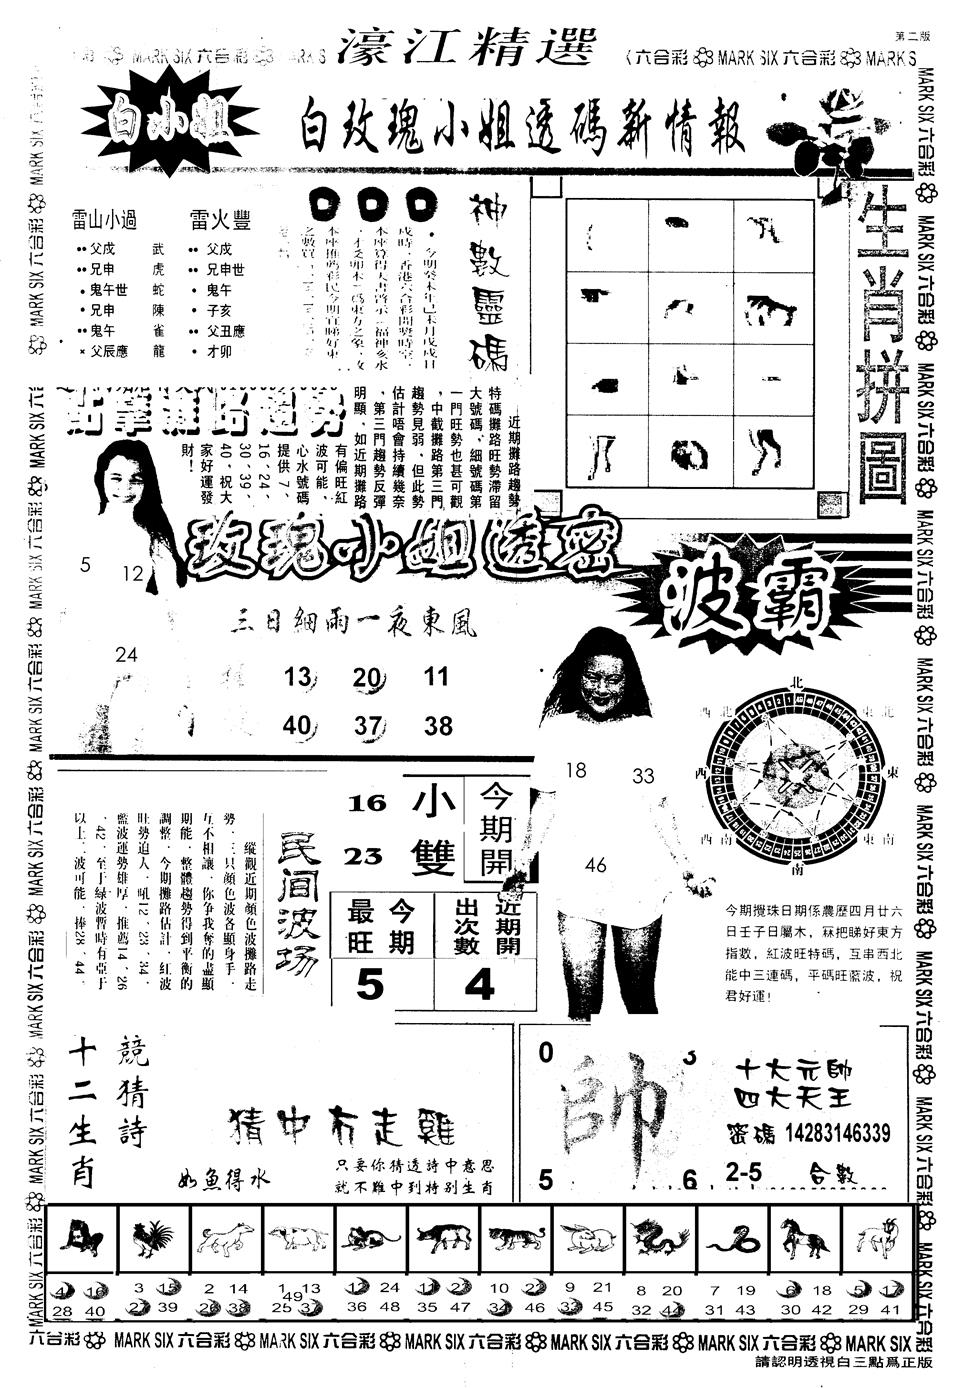 濠江精選
第二版
MARK SIX 六合彩
白小姐
白玫瑰小姐透碼新情報
雷山小過
父戌 武
兄申 虎
鬼午世 蛇
兄申 陳
鬼午 雀
× 父辰應 龍
雷火豐
父戌
兄申世
鬼午
子亥
父丑應
才卯
神數靈碼
生肖拼圖
點擊攤路趨勢
近期攤路趨勢
特碼攤路旺勢滯留
大號碼、細號碼第
一門旺勢也甚可觀
，中截攤路第三門
趨勢見弱，但此勢
估計唔會持續幾奈
、第三門趨勢反彈
明顯，如近期攤路
有偏旺紅
波可能，
心水號碼
提供7、
16、24、
30、39、
40，祝大
家好運發
財！
玫瑰小姐透密
5
12
三日細雨一夜東風
24
13 20 11
40 37 38
波霸
18 33
46
北
東北
東
東南
南
西南
西
西北
今期攪珠日期係農歷四月廿六
日壬子日屬木，冧把睇好東方
指數，紅波旺特碼，互串西北
能中三連碼，平碼旺藍波，祝
君好運!
民间波场
縱觀近期顔色波攤路走
勢，三只顔色波各顯身手，
互不相讓，你爭我奪的盡顯
期能，整體趨勢得到平衡的
調整，今期攤路估計，紅波
旺勢迫人，吼12、23、34，
藍波運勢雄厚，推薦14、26
、42，至于緑波暫時有亞于
以上二波可能，捧28、44。
16 小
23 雙
今期開
今期最旺
5
近期開出次數
4
十二生肖
競猜詩
猜中冇走雞
如魚得水
只要你猜透詩中意思
就不難中到特別生肖
0 3
帥
5 6
十大元帥
四大天王
密碼 14283146339
2-5 合數
4 16 28 40
3 15 27 39
2 14 26 38
1 13 49 25 37
12 24 36 48
11 23 35 47
10 22 34 46
9 21 33 45
8 20 32 44
7 19 31 43
6 18 30 42
5 17 29 41
六合彩 MARK SIX 六合彩 MARK SIX 六合彩 MARK SIX 六合彩 MARK SIX 六合彩 MARK SIX 六合彩 MARK SIX 六合彩
請認明透視白三點爲正版